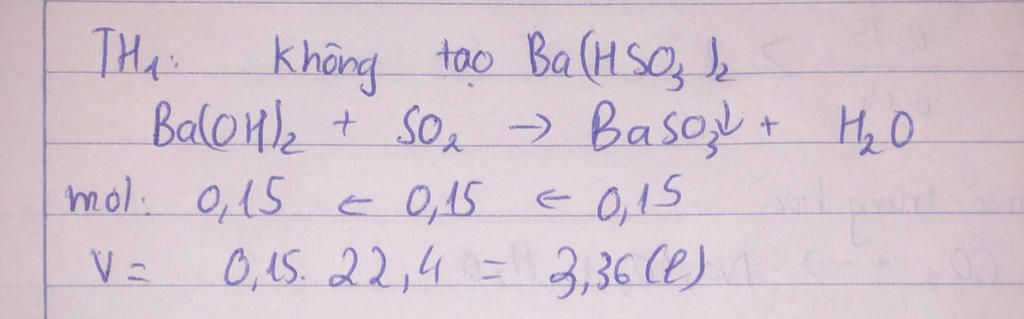 TH₁: Không tạo Ba(HSO₃)₂
Ba(OH)₂ + SO₂ → BaSO₃↓ + H₂O
mol: 0,15 ← 0,15 ← 0,15
V = 0,15. 22,4 = 3,36 (l)